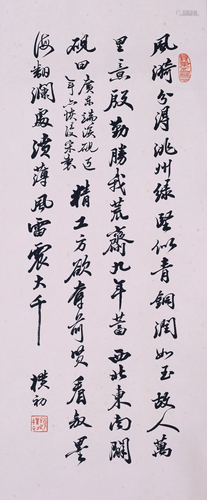 風漪分得洮州綠堅似青銅潤如玉故人萬
里意殷勤勝我荒齋九年蓄西北東南闢
硯田
廣東端溪硯近
年宋製
精工方欲奪前賢看教墨
海翻瀾處濆薄風雷震大千
樸初